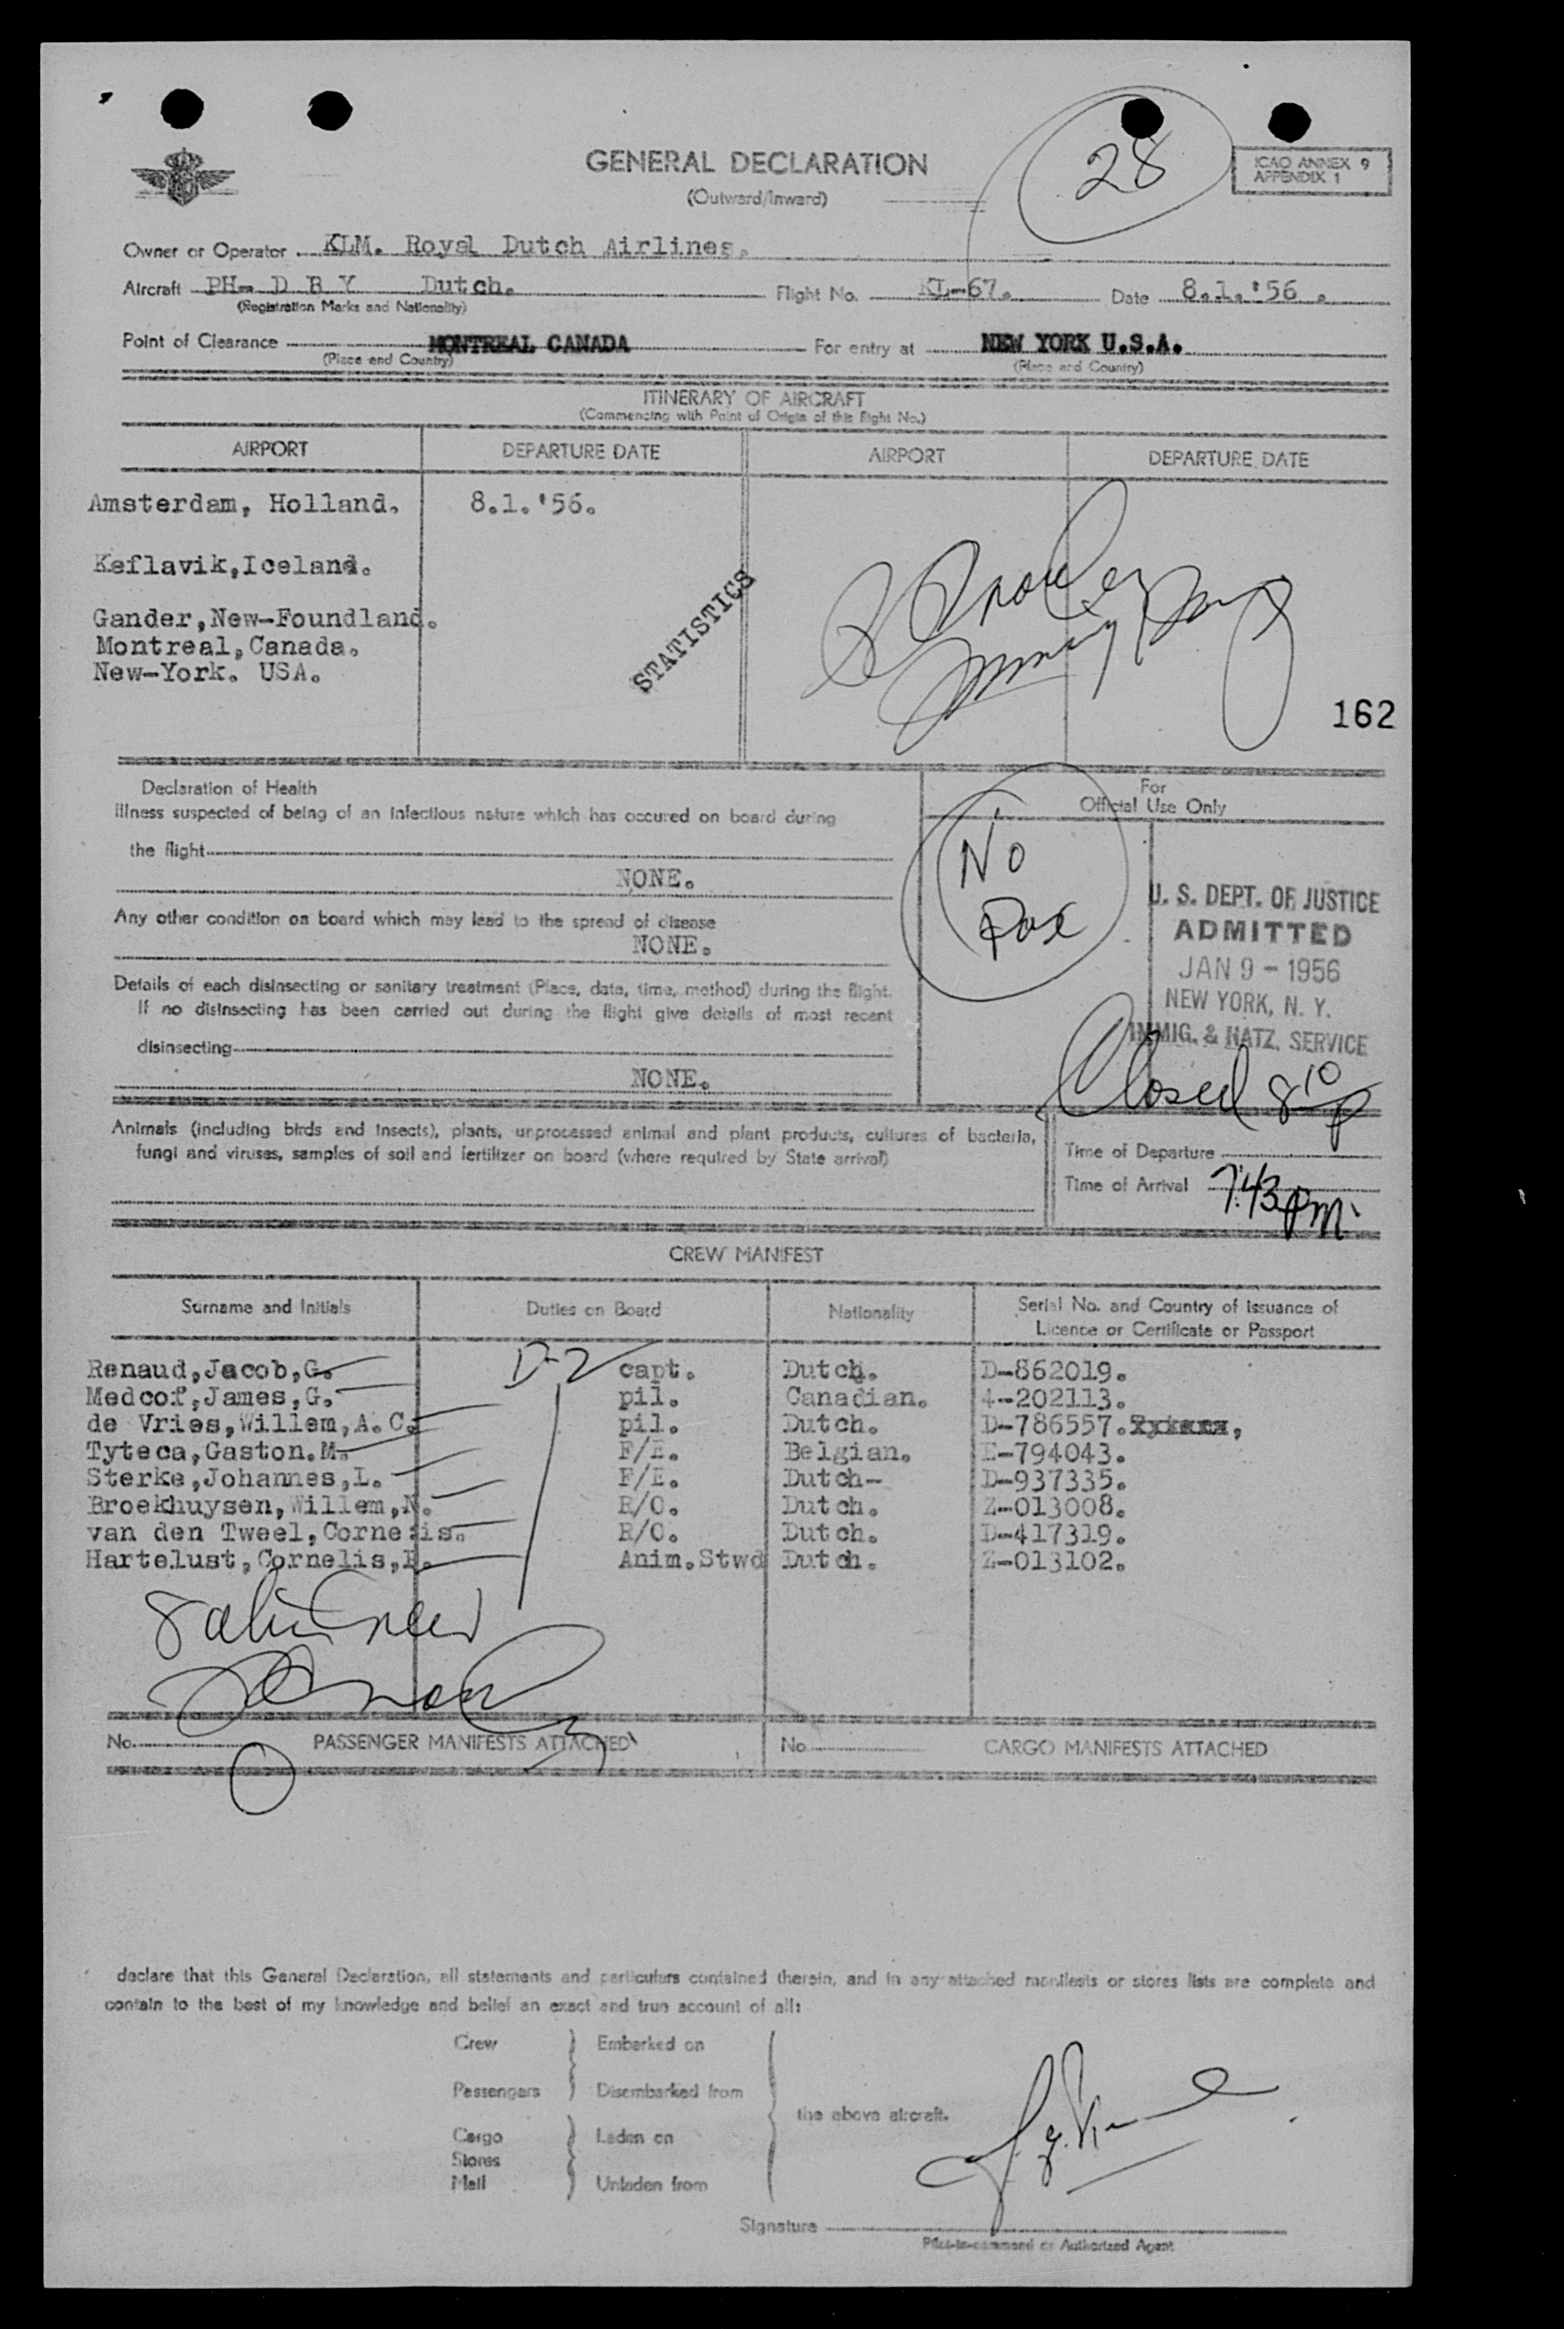 GENERAL DECLARATION
(Outward/Inward)
28
ICAO ANNEX 9
APPENDIX 1
Owner or Operator KLM. Royal Dutch Airlines.
Aircraft PH- D B Y Dutch. Flight No. KL-67. Date 8.1.'56 .
(Registration Marks and Nationality)
Point of Clearance MONTREAL CANADA For entry at NEW YORK U.S.A.
(Place and Country) (Place and Country)
ITINERARY OF AIRCRAFT
(Commencing with Point of Origin of this flight No.)
AIRPORT DEPARTURE DATE AIRPORT DEPARTURE DATE
Amsterdam, Holland. 8.1.'56.
Keflavik,Iceland.
Gander,New-Foundland.
Montreal,Canada.
New-York. USA.
STATISTICS
162
Declaration of Health
Illness suspected of being of an infectious nature which has occured on board during
the flight
NONE.
Any other condition on board which may lead to the spread of disease
NONE.
Details of each disinsecting or sanitary treatment (Place, date, time, method) during the flight.
If no disinsecting has been carried out during the flight give details of most recent
disinsecting
NONE.
For
Official Use Only
No
Pax
U. S. DEPT. OF JUSTICE
ADMITTED
JAN 9 - 1956
NEW YORK, N. Y.
IMMIG. & NATZ. SERVICE
Closed 8 10 p
Animals (including birds and insects), plants, unprocessed animal and plant products, cultures of bacteria,
fungi and viruses, samples of soil and fertilizer on board (where required by State arrival)
Time of Departure
Time of Arrival 7:43 pm.
CREW MANIFEST
Surname and Initials Duties on Board Nationality Serial No. and Country of Issuance of
Licence or Certificate or Passport
D-2
Renaud,Jacob,G. capt. Dutch. D-862019.
Medcof,James,G. pil. Canadian. 4-202113.
de Vries,Willem,A.C. pil. Dutch. D-786557.
Tyteca,Gaston.M. F/E. Belgian. E-794043.
Sterke,Johannes,L. F/E. Dutch- D-937335.
Broekhuysen,Willem,N. R/O. Dutch. Z-013008.
van den Tweel,Cornelis. R/O. Dutch. D-417319.
Hartelust,Cornelis, Anim.Stwd Dutch. Z-013102.
8 alien crew
No. PASSENGER MANIFESTS ATTACHED No. CARGO MANIFESTS ATTACHED
0
declare that this General Declaration, all statements and particulars contained therein, and in any attached manifests or stores lists are complete and
contain to the best of my knowledge and belief an exact and true account of all:
Crew Embarked on
Passengers Disembarked from
the above aircraft.
Cargo Laden on
Stores
Mail Unladen from
Signature
Pilot-in-command or Authorized Agent